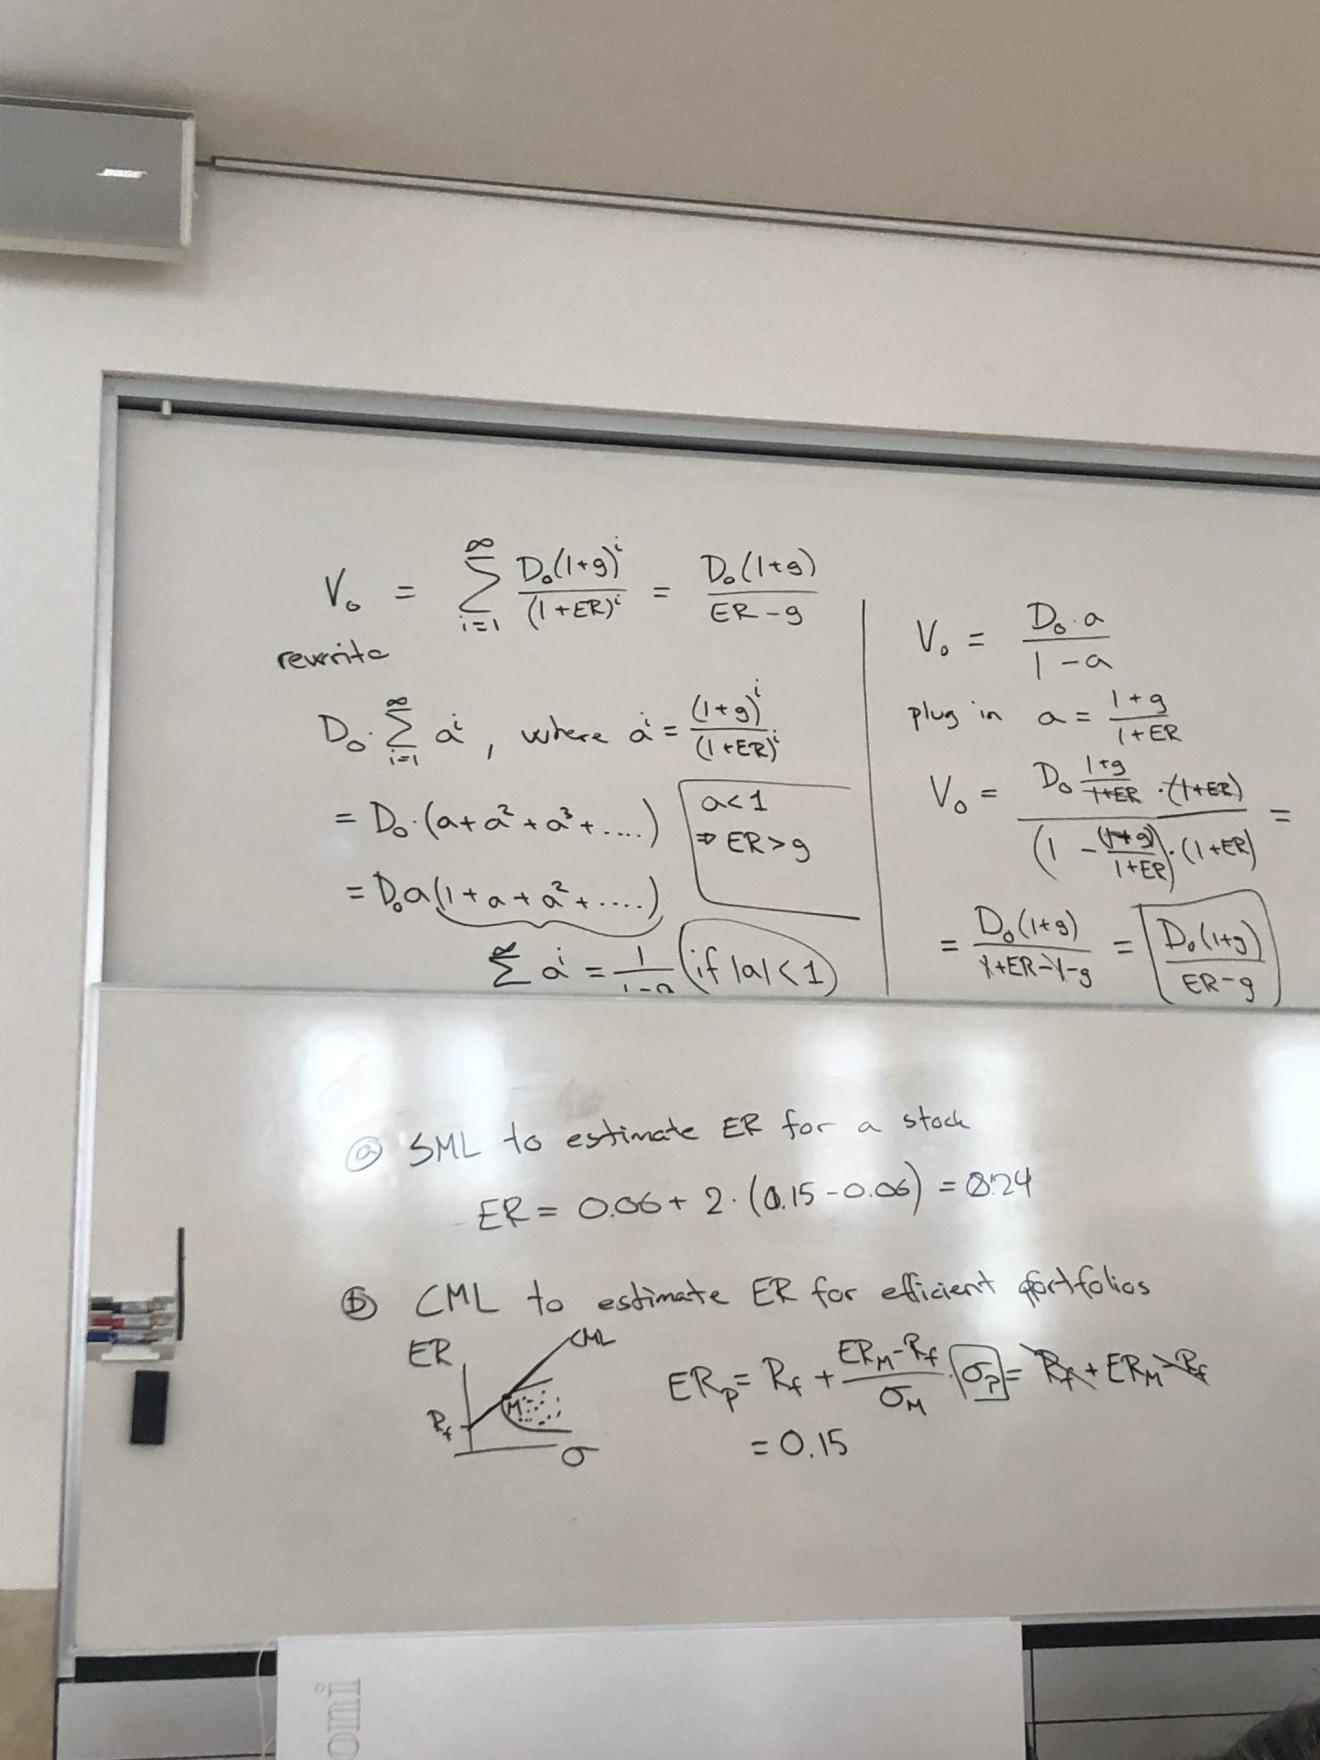 V₀ = ∞ Σ i=1 D₀(1+g)ⁱ / (1+ER)ⁱ = D₀(1+g) / ER-g
rewrite
D₀· ∞ Σ i=1 aⁱ, where aⁱ = (1+g)ⁱ / (1+ER)ⁱ
= D₀·(a+a²+a³+....)
a<1
⇒ ER>g
= D₀a(1+a+a²+....)
∞ Σ aⁱ = 1 / 1-a (if |a|<1)
V₀ = D₀·a / 1-a
plug in a = 1+g / 1+ER
V₀ = D₀ 1+g / 1+ER ·(1+ER) / (1 - (1+g) / 1+ER)·(1+ER) =
= D₀(1+g) / 1+ER-1-g = D₀(1+g) / ER-g
ⓐ SML to estimate ER for a stock
ER = 0.06 + 2·(0.15-0.06) = 0.24
ⓑ CML to estimate ER for efficient portfolios
ER
CML
M
Rf
σ
ERp = Rf + ERM-Rf / σM · σp = Rf + ERM-Rf
= 0.15
omi